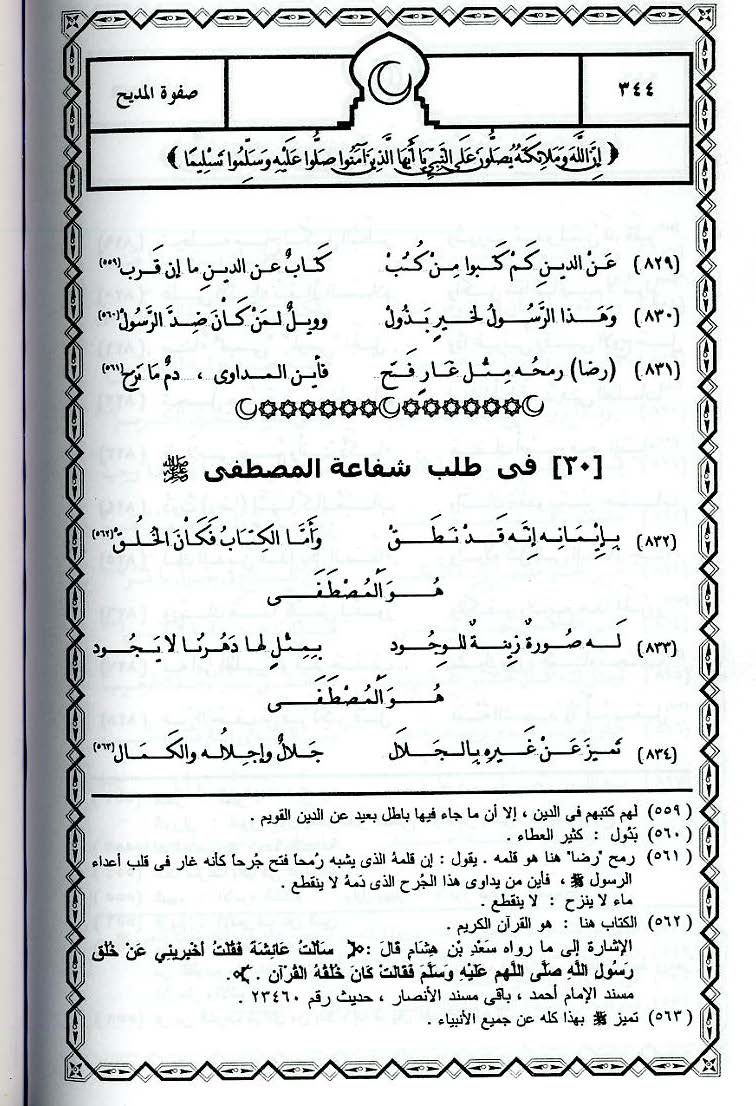 ٣٤٤
صفوة المديح
﴿ إِنَّ اللَّهَ وَمَلَائِكَتَهُ يُصَلُّونَ عَلَى النَّبِيِّ يَا أَيُّهَا الَّذِينَ آمَنُوا صَلُّوا عَلَيْهِ وَسَلِّمُوا تَسْلِيمًا ﴾
(٨٢٩) عَنْ الدينِ كَمْ كَتَبوا مِنْ كُتُبْ كتابٌ عن الدينِ ما إن قَرب(٥٥٩)
(٨٣٠) وَهَذا الرَّسُولُ لخيرٍ بَذُول وويلٌ لمنْ كَانَ ضِدَّ الرَّسُولْ(٥٦٠)
(٨٣١) (رضا) رمحُه مِثْل غَارٍ فَتَح فأين المداوى ، دمٌ مَا نزح(٥٦١)
[٣٠] فى طلب شفاعة المصطفى ﷺ
(٨٣٢) بِإِيْمَانِه إِنَّه قَدْ نَطَقْ وَأَمَّا الكِتَابُ فَكَانَ الخُلُقْ(٥٦٢)
هُوَ الْمُصْطَفَى
(٨٣٣) لَه صُورةٌ زِينةٌ للوجُود بِمِثْلٍ لها دَهْرُنا لا يَجُود
هُوَ الْمُصْطَفَى
(٨٣٤) تميزَ عَنْ غَيرِه بِالجَلَال جَلالٌ وإجلالُه والكَمَال(٥٦٣)
(٥٥٩) لهم كتبهم فى الدين ، إلا أن ما جاء فيها باطل بعيد عن الدين القويم .
(٥٦٠) بَذُول : كثير العطاء .
(٥٦١) رمح "رضا" هنا هو قلمه . يقول : إن قلمهُ الذى يشبه رُمحاً فتح جُرحاً كأنه غار فى قلب أعداء
الرسول ﷺ ، فأين من يداوى هذا الجُرح الذى دَمهُ لا ينقطع .
ماء لا ينزح : لا ينقطع .
(٥٦٢) الكتاب هنا : هو القرآن الكريم .
الإشارة إلى ما رواه سَعْدِ بْنِ هِشَامٍ قَالَ : سَأَلْتُ عَائِشَةَ فَقُلْتُ أَخْبِرِينِي عَنْ خُلُقِ
رَسُولِ اللَّهِ صَلَّى اللَّهم عَلَيْهِ وَسَلَّمَ فَقَالَتْ كَانَ خُلُقُهُ الْقُرْآنَ .
مسند الإمام أحمد ، باقى مسند الأنصار ، حديث رقم ٢٣٤٦٠ .
(٥٦٣) تميز ﷺ بهذا كله عن جميع الأنبياء .